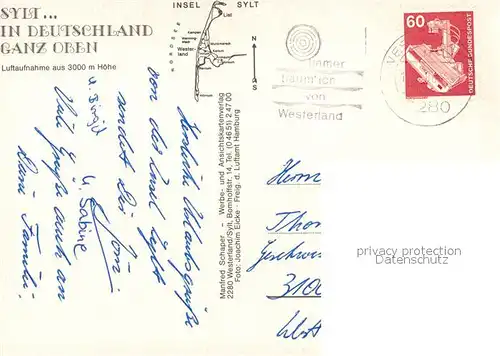 SYLT...
IN DEUTSCHLAND
GANZ OBEN
Luftaufnahme aus 3000 m Höhe
INSEL SYLT
NORDSEE
List
Kampen
Westerland
Keitum
Hörnum
N
S
immer
von
Westerland
280
60
DEUTSCHE BUNDESPOST
Manfred Schaper - Werbe- und Ansichtskartenverlag
2280 Westerland/Sylt, Bomhoffstr. 14, Tel. (0 46 51) 2 47 00
Foto: Joachim Eicke - Freig. d. Luftamt Hamburg
Herzliche Urlaubsgrüße
von der Insel Sylt
sendet Dir
Jörn
u. Sabine
u. Birgit
Viele Grüße auch an
Deine Familie!
Herrn
Thom
Geschwis
3100
privacy protection
Datenschutz